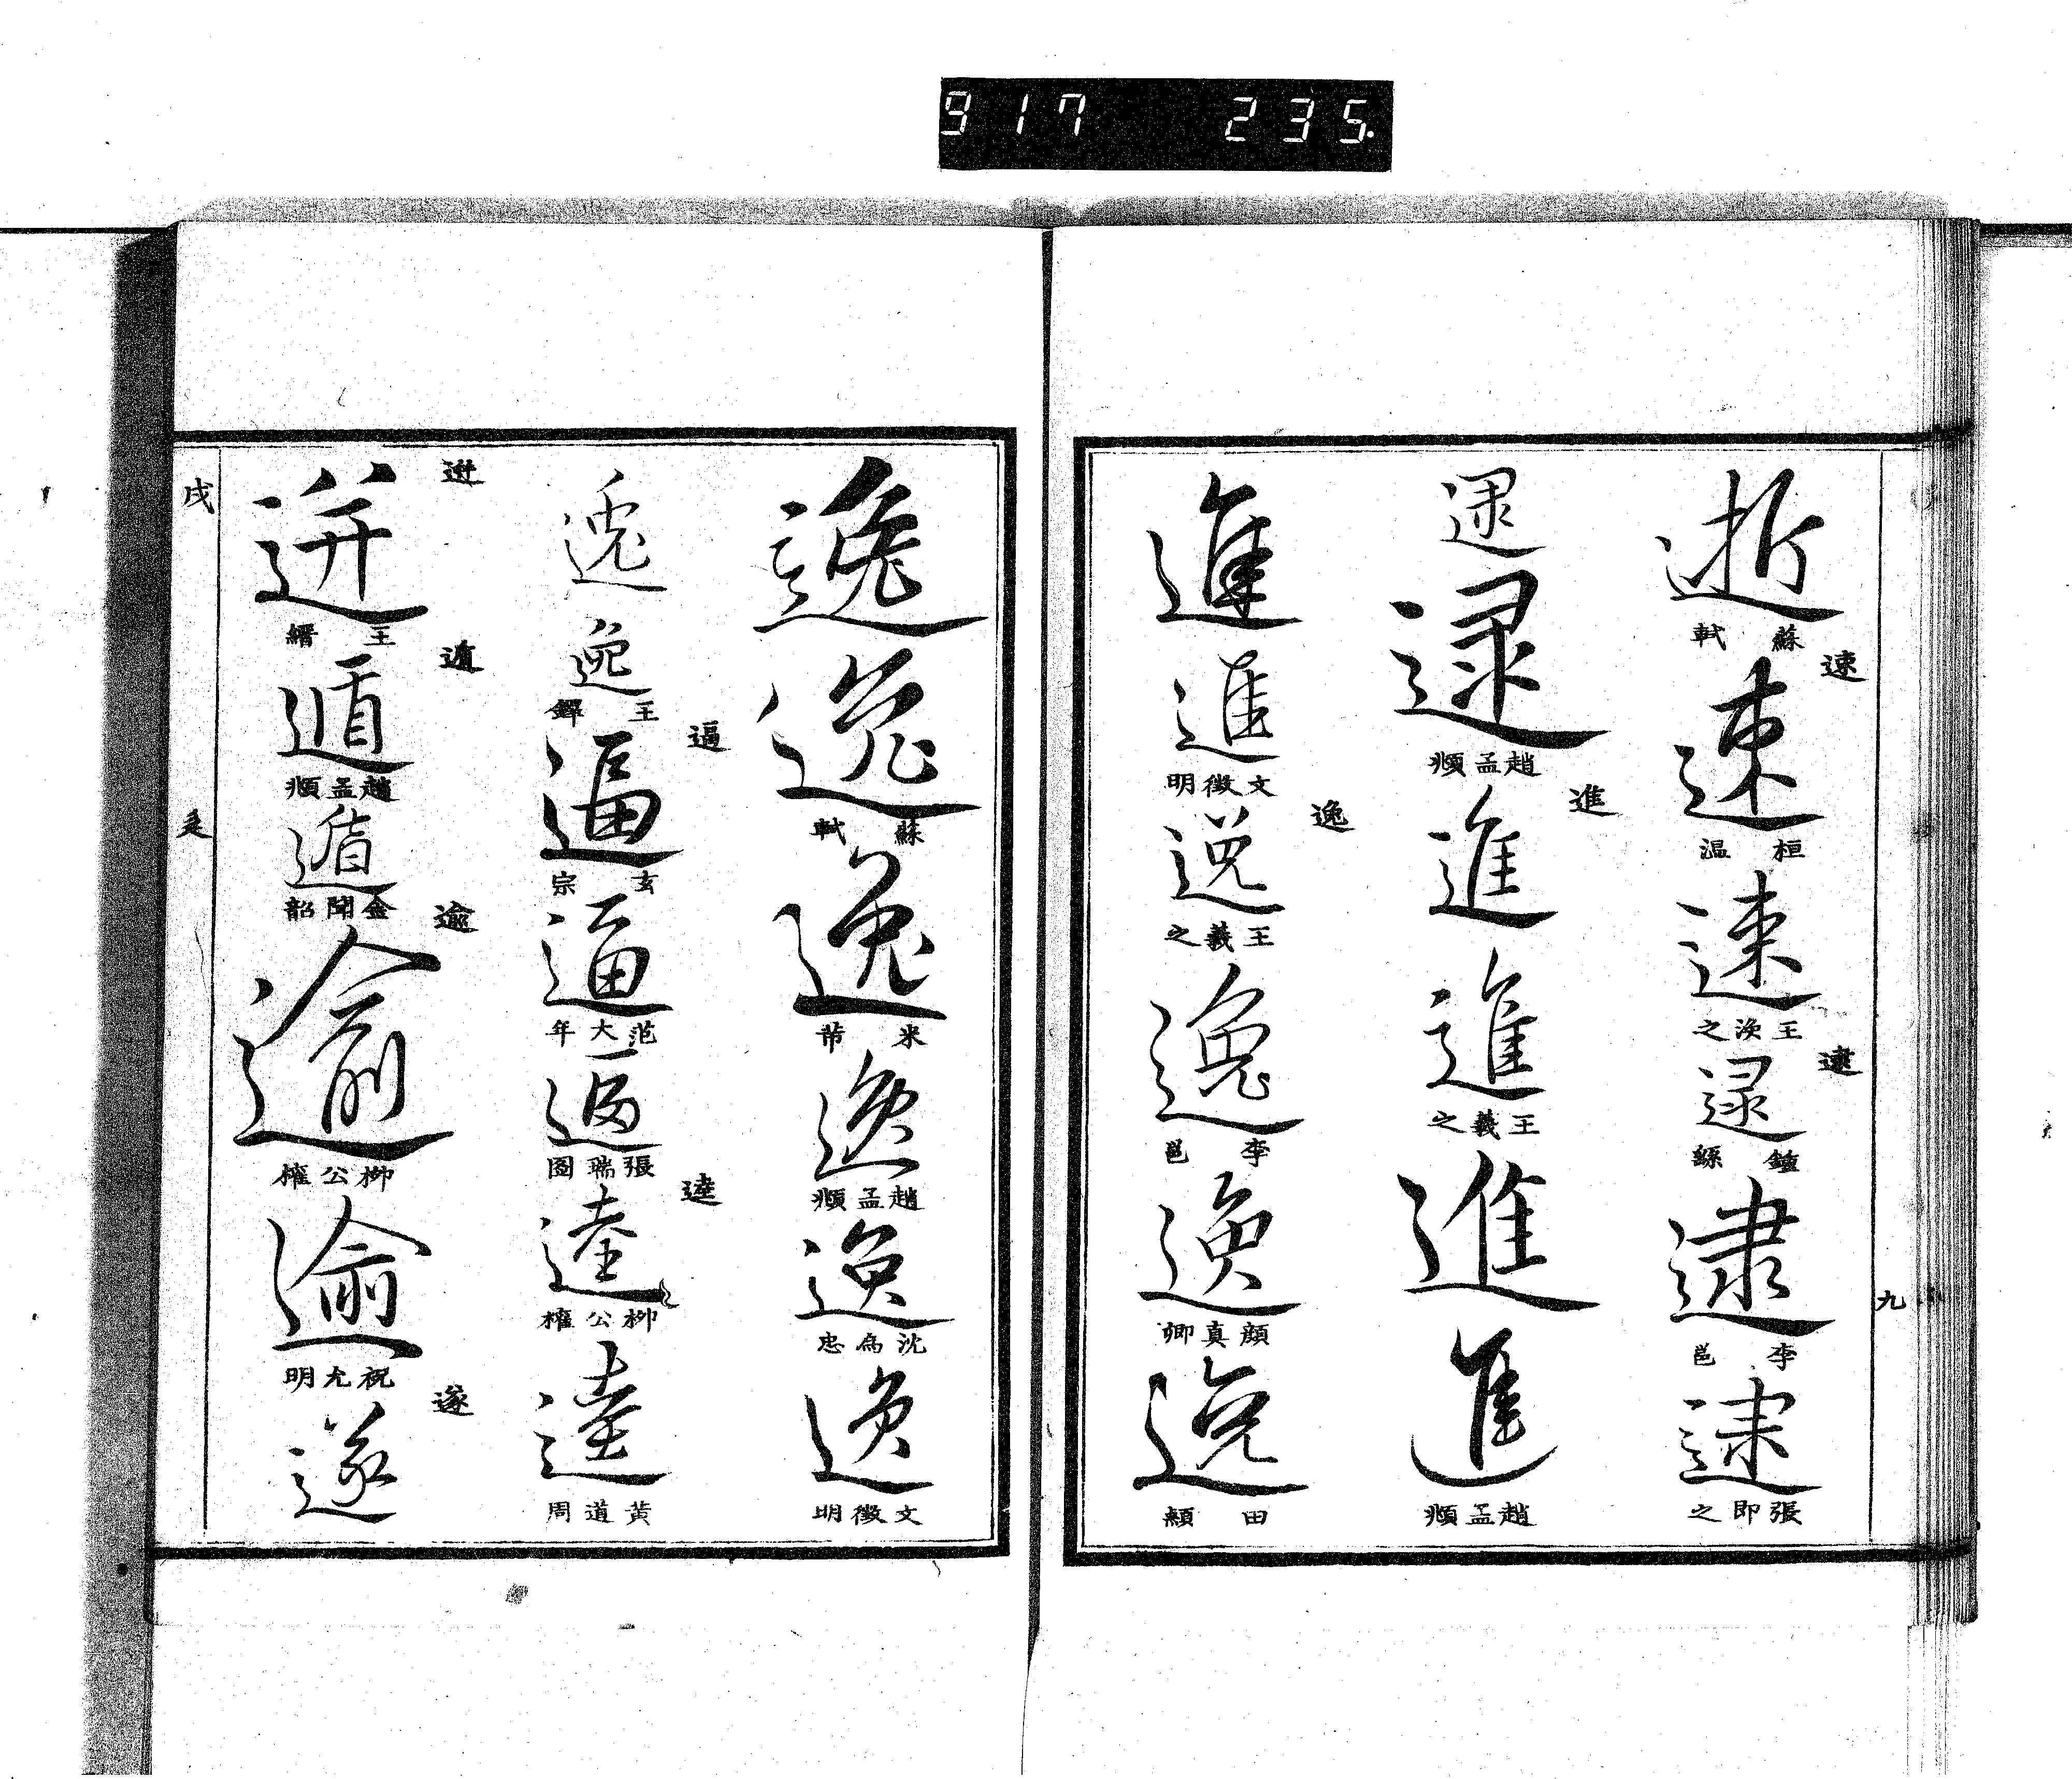 917 235.
九
逝
蘇軾
速
速
桓温
速
王渙之
逮
逮
鍾繇
逮
李邕
逮
張即之
逮
逮
趙孟頫
進
進
進
王羲之
進
進
趙孟頫
進
進
文徵明
逸
逸
王羲之
逸
李邕
逸
顏真卿
逸
田顙
逸
逸
蘇軾
逸
米芾
逸
趙孟頫
逸
沈為忠
逸
文徵明
逸
逸
王鐸
逼
逼
玄宗
逼
范大年
逼
張瑞圖
逵
逵
柳公權
逵
黃道周
迸
迸
王縉
遁
遁
趙孟頫
遁
俞聞韶
逾
逾
柳公權
逾
祝允明
遂
遂
戌
辵